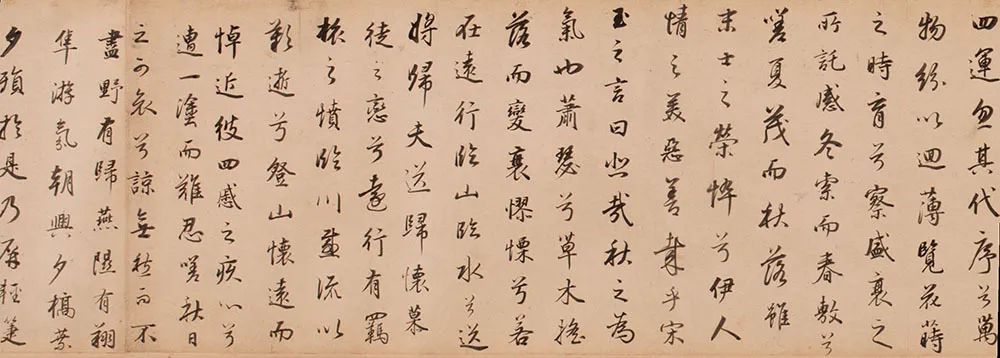 四運忽其代序兮萬
物紛以迴薄覽花蒔
之時育兮察盛衰之
所託感冬索而春敷兮
嗟夏茂而秋落雖
末士之榮悴兮伊人
情之美惡善哉乎宋
玉之言曰悲哉秋之為
氣也蕭瑟兮草木搖
落而變衰憀慄兮若
在遠行臨山臨水兮送
將歸夫送歸懷慕
徒之戀兮遠行有羈
旅之憤臨川感流以
歎逝兮登山懷遠而
悼近彼四慼之疚心兮
遭一塗而難忍嗟秋日
之可哀兮諒無愁而不
盡野有歸燕隰有翔
隼游氛朝興夕槁葉
夕殞於是乃屏輕箑